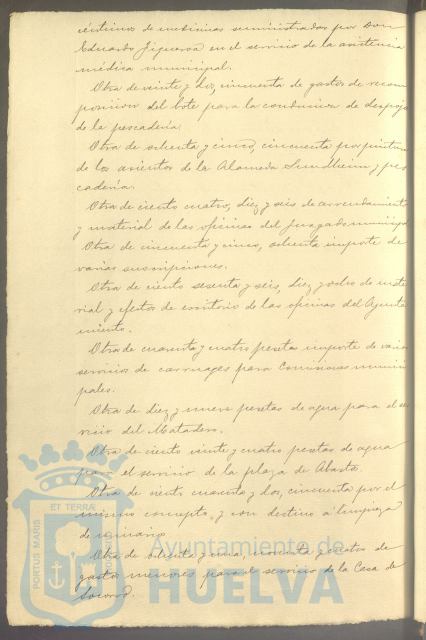 céntimos de medicinas suministradas por Don
Eduardo Figueroa en el servicio de la asistencia
médica municipal.
Otra de veinte y dos, cincuenta de gastos de recom
posicion del bote para la conduccion de despojos
de la pescadería.
Otra de setenta y cinco, cincuenta por pintura
de los asientos de la Alameda Sundheim y pes
cadería.
Otra de ciento cuatro, diez y seis de arrendamiento
y material de las oficinas del Juzgado municipal
Otra de cincuenta y cinco, setenta importe de
varias suscripciones.
Otra de ciento sesenta y seis, diez y ocho de mate
rial y efectos de escritorio de las oficinas del Ayunta
miento.
Otra de cuarenta y cuatro pesetas importe de varios
servicios de carruages para Comisiones munici
pales.
Otra de diez y nueve pesetas de agua para el ser
vicio del Matadero.
Otra de ciento veinte y cuatro pesetas de agua
para el servicio de la plaza de Abasto.
Otra de ciento cuarenta y dos, cincuenta por el
mismo concepto, y con destino á limpieza
de urinarios.
Otra de ochenta y una, noventa y cuatro de
gastos menores para el servicio de la Casa de
Socorro.
PORTUS MARIS
ET TERRAE
Ayuntamiento de
HUELVA